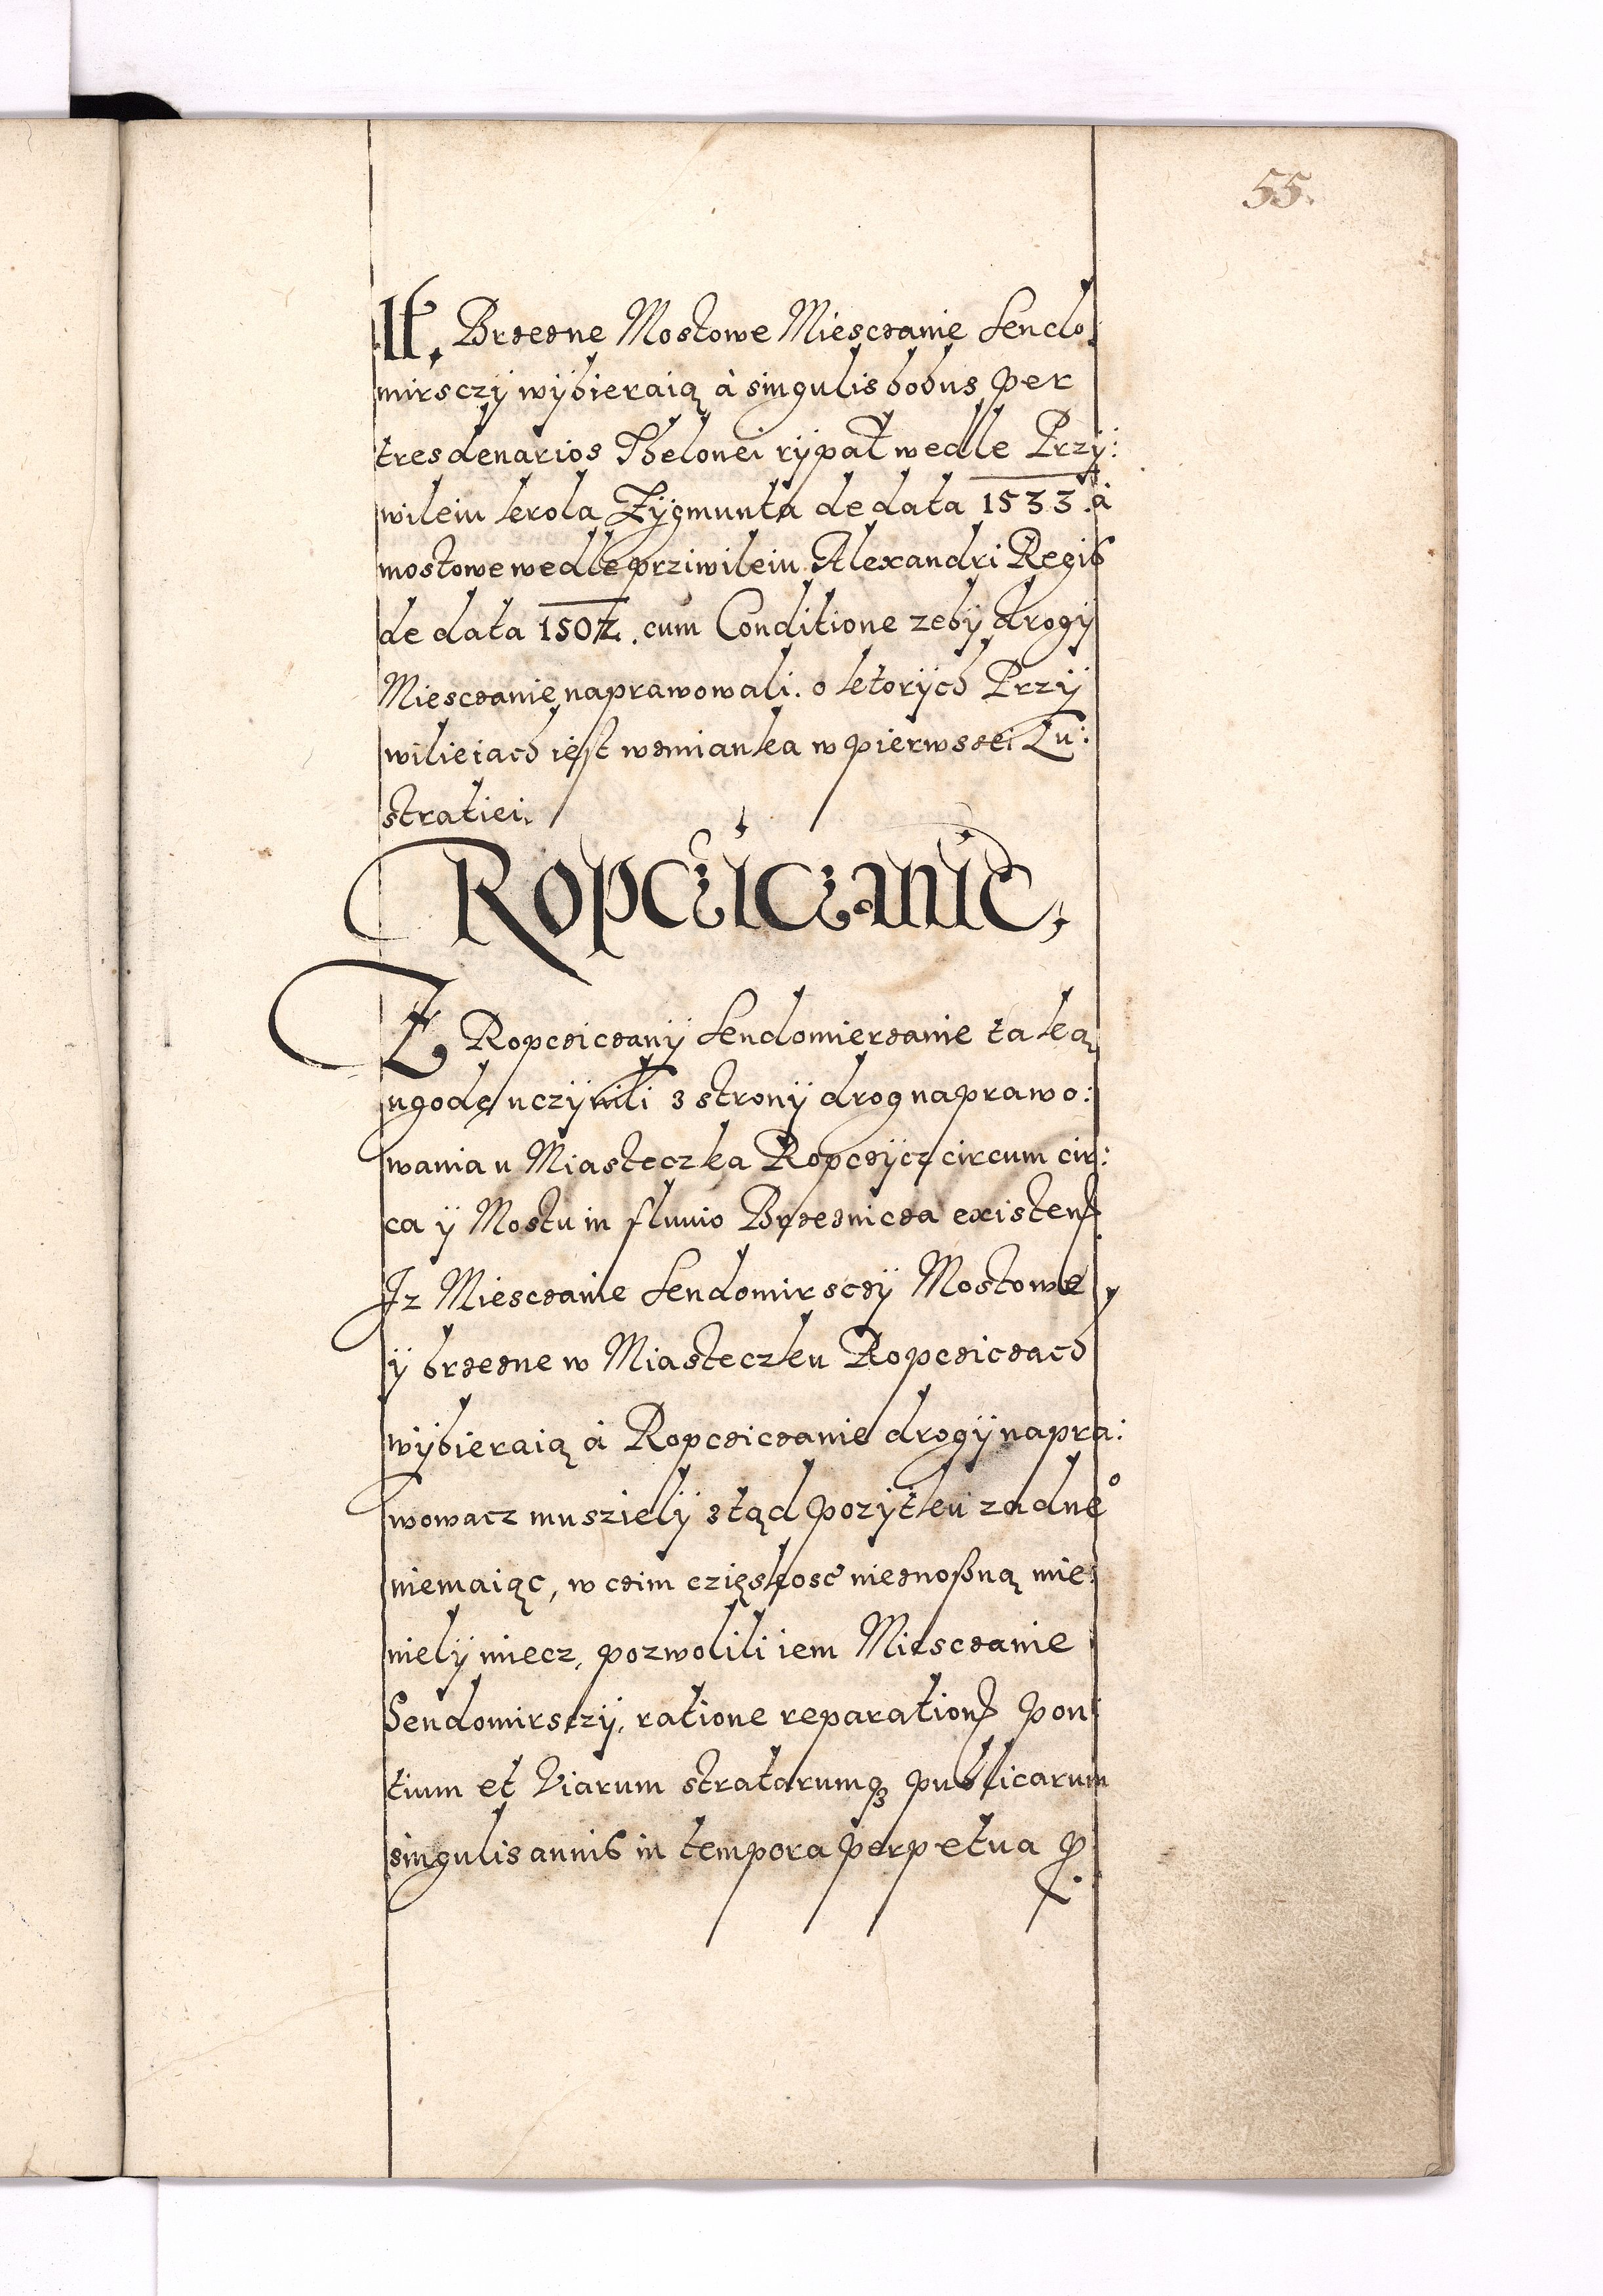 55.
It. Brzezne Mostowe Miesczanie Sendo:
mirsczÿ wÿbieraią à singulis bobus per
tres denarios Thelonei rÿpat wedle Przÿ:
wileiu krola Zÿgmunta de data 1533. à
mostowe wedle prziwileiu Alexandri Regis
de data 1502. cum Conditione zebÿ drogÿ
Miesczanie naprawowali. o ktorÿch Przÿ
wilieiach iest wzmianka w pierwszei Lu:
stratiei.
Ropcziczanie,
Z Ropcziczanÿ Sendomierzanie taką
ugodę uczÿnili z stronÿ drog naprawo:
wania u Miasteczka Ropczÿcz circum cir:
ca ÿ Mostu in fluuio Brzeznicza existen
Iz Miesczanie Sendomirsczÿ Mostowe
ÿ brzezne w Miasteczku Ropcziczach
wÿbieraią à Ropcziczanie drogÿ napra:
wowacz muszielÿ ztąd pozÿtku zadneº
niemaiąc, w czim czięskosc nieznosną mie:
nielÿ miecz, pozwolili iem Miesczanie
Sendomirsczÿ, ratione reparation pon
tium et Viarum stratarumqꝫ publicarum
singulis annis in tempora perpetua p